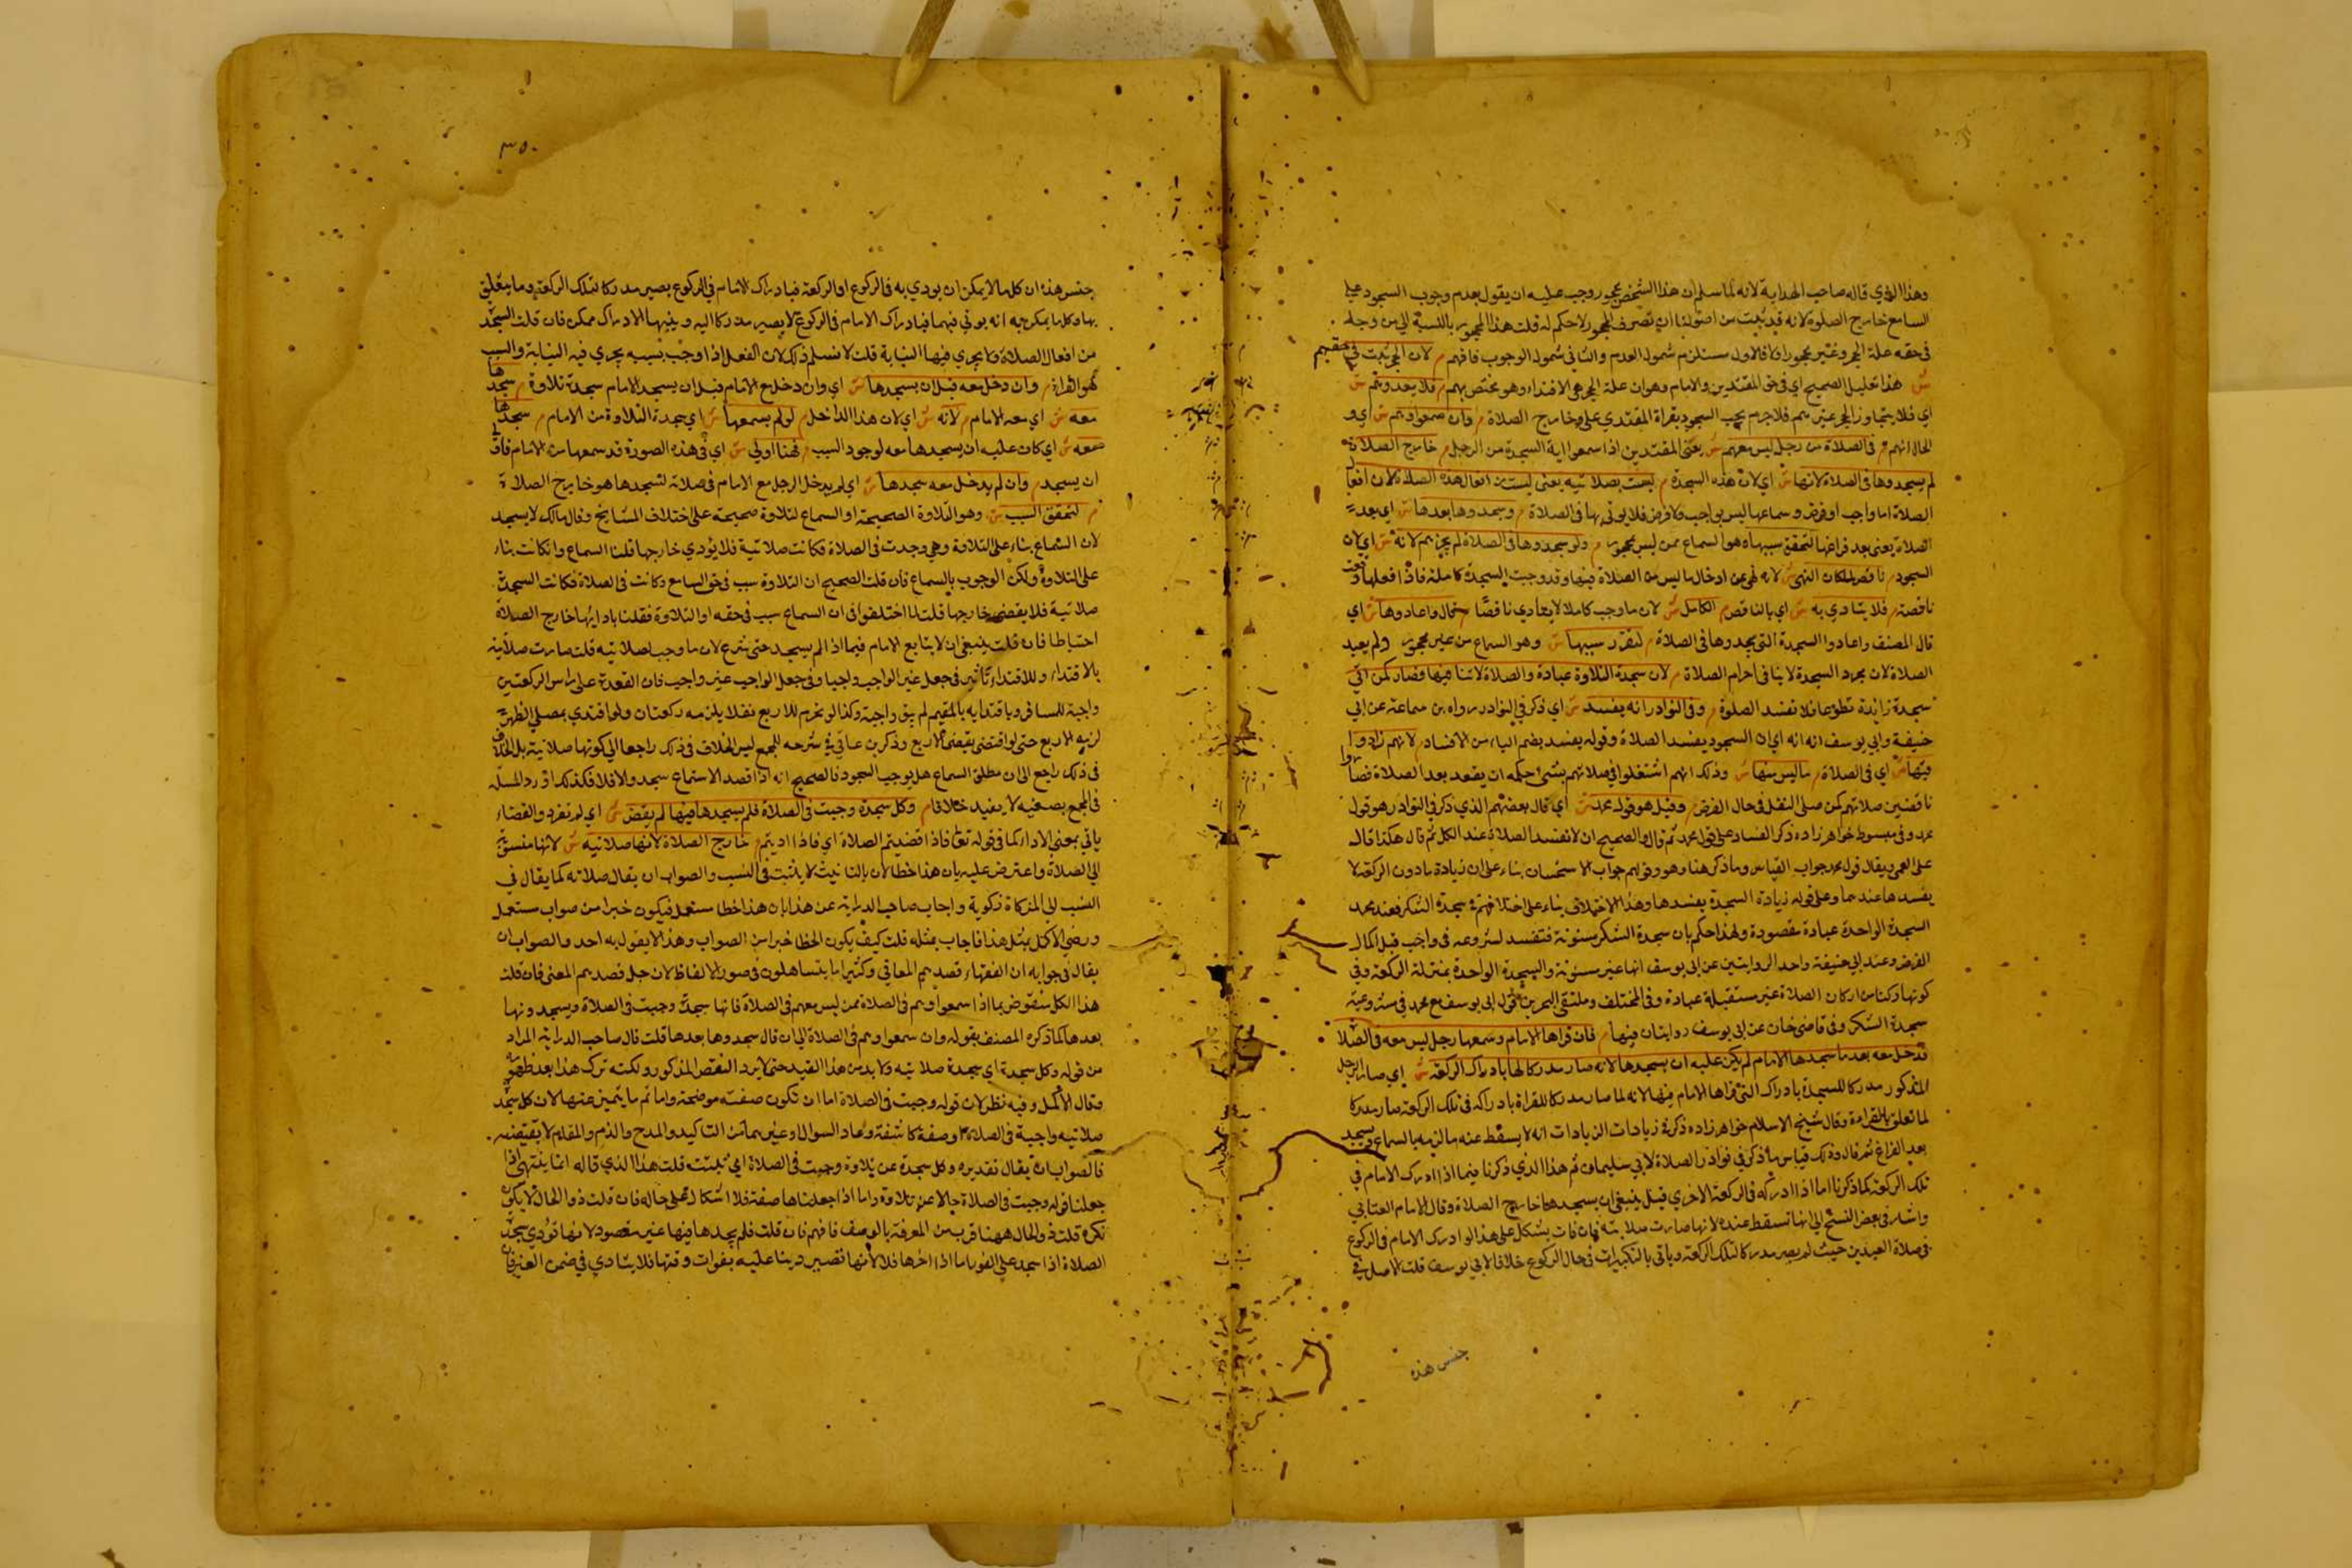 وهذا الذي قاله صاحب الهداية لانه لما سلم ان هذا الشخص محجور وجب عليه ان يقول بعدم وجوب السجود على
السامع خارج الصلوة لانه قد ثبت من اصولنا ان تصرف المحجور لا حكم له قلت هذا المحجور بالنسبة الى من وجد
في حقه علة الحجر وغير محجور فالاول مستلزم شمول العدم والثاني شمول الوجوب فافهم م لان الحجر ثبت في حقهم
ش هذا تعليل الصحيح اي في حق المقتدين والامام وهو ان علة الحجر هي الاقتداء وهو مختص بهم م فلا يعدوهم ش
اي فلا يتجاوز الحجر غيرهم فلا جرم يجب السجود بقراة المقتدي على خارج الصلاة م وان سمعوا وهم ش اي و
الحال انهم م في الصلاة من رجل ليس معهم ش يعني المقتدين اذا سمعوا اية السجدة من الرجل م خارج الصلاة
لم يسجدوها في الصلاة لانها ش اي لان هذه السجدة م ليست بصلاتيه يعني ليست من افعال هذه الصلاة لان افعال
الصلاة اما واجب او فرض وسماعها ليس بواجب ولا فرض فلا يوتى بها في الصلاة م وسجدوها بعدها ش اي بعد
الصلاة يعني بعد فراغها لتحقق سببها وهو السماع ممن ليس بمحجور م ولو سجدوها في الصلاة لم يجزهم لانه ش اي لان
السجود م ناقص لمكان النهي ش لانه نهي عن ادخال ما ليس من الصلاة فيها وقد وجبت السجدة كاملة فاذا فعلها وقعت
ناقصة م فلا يتادي به ش اي بالناقص م الكامل ش لان ما وجب كاملا لا يتادي ناقصا م قال واعادوها ش اي
قال المصنف واعادوا السجدة التي سجدوها في الصلاة م لتقرر سببها ش وهو السماع من غير محجور م ولم يعيدوا
الصلاة لان مجرد السجدة لا ينافى احرام الصلاة م لان سجدة التلاوة عبادة والصلاة لا تنافيها فصار كمن اتى
سجدة زائدة تطوعا فلا تفسد الصلوة م وفى النوادر انه يفسد ش اي ذكر في النوادر رواه بن سماعة عن ابي
حنيفة وابي يوسف انه اي ان السجود يفسد الصلاة وقوله يفسد بضم الياء من الافساد م لانهم زادوا
فيها ش اي في الصلاة م ما ليس منها ش وذلك انهم اشتغلوا في صلاتهم بشئ حكمه ان يفعد بعد الصلاة فصاروا
ناقضين صلاتهم كمن صلى النفل في حال الفرض م وقيل هو قول محمد ش اي قال بعضهم الذي ذكر في النوادر هو قول
محمد وفى مبسوط خواهر زاده ذكر الفساد على قول محمد ثم قال والصحيح ان لا تفسد الصلاة عند الكل ثم قال هكذا قال
يفسدها عندهما وعلى قوله زيادة السجدة يفسدها وهذا الاختلاف بناء على اختلافهم في سجدة الشكر فعند محمد
السجدة الواحدة عبادة مقصودة ولهذا حكم بان سجدة الشكر مسنونة فتفسد لشروعه في واجب قبل اكمال
الفرض وعند ابي حنيفة واحد الروايتين عن ابي يوسف انها غير مسنونة والسجدة الواحدة بمنزلة الركعة وفي
كونها ركنا من اركان الصلاة غير مستقبلة عبادة وفى المختلف وملتقى البحرين قول ابى يوسف مع محمد في شرعية
سجدة الشكر وفى قاضى خان عن ابى يوسف روايتان فيها م فان قراها الامام وسمعها رجل ليس معه في الصلاة
فدخل معه بعد ما سجدها الامام لم يكن عليه ان يسجدها لانه صار مدركا لها بادراك الركعة ش اي صار الرجل
المذكور مدركا للسجدة بادراك التي قراها الامام فيها لانه لما صار مدركا للقراة بادراكه في تلك الركعة صار مدركا
لما تعلق بالقراءة وقال شيخ الاسلام خواهر زاده ذكر في زيادات الزيادات انه لا يسقط عنه ما لزمه بالسماع ويسجد
بعد الفراغ ثم قال وذلك قياس ما ذكر في نوادر الصلاة لابي سليمان ثم هذا الذي ذكرنا فيما اذا ادرك الامام في
تلك الركعة كما ذكرنا اما اذا ادركه في الركعة الاخرى قيل ينبغي ان يسجدها خارج الصلاة وقال الامام العتابي
واشار في بعض النسخ الى انها تسقط عنده لانها صارت صلاتيه فان قلت يشكل على هذا لو ادرك الامام في الركوع
في صلاة العيدين حيث لم يصر مدركا لتلك الركعة وياتي بالتكبيرات في حال الركوع خلافا لابي يوسف قلت الاصل في
جنس هذه
٣٥٠
جنس هذه ان كلما لا يمكن ان يودي به في الركوع او الركعة فبادراك الامام في الركوع يصير مدركا لتلك الركعة وما يتعلق
بها وكلما يمكن به انه يوتى فيهما فبادراك الامام في الركوع لا يصير مدركا اليه وفيها الادراك ممكن فان قلت السجدة
من افعال الصلاة ولا يجري فيها النيابة قلت لا نسلم ذلك لان الفعل اذا وجب بسببه يجري فيه النيابة والسبب
هو القراة م وان دخل معه قبل ان يسجدها ش اي وان دخل مع الامام قبل ان يسجد الامام سجدة تلاوة م سجدها
معه ش اي مع الامام م لانه ش اي لان هذا الداخل م لو لم يسمعها ش اي سجدة التلاوة من الامام م سجدها
معه ش اي كان عليه ان يسجدها معه لوجود السبب م فهنا اولى ش اي في هذه الصورة قد سمعها من الامام فاولى
ان يسجد م وان لم يدخل معه سجدها ش اي لم يدخل الرجل مع الامام في صلاته لسجدها هو خارج الصلاة
م لتحقق السبب ش وهو التلاوة الصحيحة او السماع لتلاوة صحيحة على اختلاف المشايخ وقال مالك لا يسجد
لان السماع بناء على التلاوة وهى وجدت في الصلاة فكانت صلاتية فلا يؤدي خارجها قلنا السماع وانكانت بناء
على التلاوة ولكن الوجوب بالسماع فان قلت الصحيح ان التلاوة سبب في حق السامع وكانت في الصلاة فكانت السجدة
صلاتية فلا يقضى خارجها قلت لما اختلفوا في ان السماع سبب في حقه او التلاوة فقلنا بادايها خارج الصلاة
احتياطا فان قلت ينبغي ان لا يتابع الامام فيما اذا لم يسجد حتى شرع لان ما وجب صلاتيه قلت صارت صلاتية
بالاقتداء وللاقتداء تاثير في جعل غير الواجب واجبا وفى جعل الواجب غير واجب فان القعدة على راس الركعتين
واجبة للمسافر وباقتدايه بالمقيم لم يبق واجبة وكذا لو تحرم للاربع نفلا يلزمه ركعتان ولو اقتدي بمصلي الظهر
لزمه الاربع حتى لو اقتضى يقضي الاربع وذكر بن عاتي في شرحه للمجمع ليس الخلاف في ذلك راجعا الى كونها صلاتية بل الخلاف
في ذلك راجع الى ان مطلق السماع هل يوجب السجود فالصحيح انه اذا قصد الاستماع سجد والا فلا فكذلك اورد المسلة
في المجمع بصيغة لا يفيد خلافا م وكل سجدة وجبت في الصلاة فلم يسجدها فيها لم يقض ش اي لم تفرد والقضاء
ياتي بمعنى الاداء كما في قوله تعالى فاذا قضيتم الصلاة اي فاذا اديتم م خارج الصلاة لانها صلاتيه ش لانها منسوبة
الى الصلاة واعترض عليه بان هذا خطا لان بالتانيث لا يثبت في النسب والصواب ان يقال صلاته كما يقال في
النسب الى الزكاة زكوية واجاب صاحب الدراية عن هذا بان هذا خطا مستعمل فيكون خيرا من صواب مستعمل
ورضي الاكمل بمثل هذا فاجاب بمثله قلت كيف يكون الخطا خيرا من الصواب وهذا لا يقول به احد والصواب ان
يقال في جوابه ان الفقهاء قصدهم المعاني وكثيرا ما يتساهلون في صور الالفاظ لان جل قصدهم المعنى فان قلت
هذا الكل منقوض بما اذا سمعوا وهم في الصلاة ممن ليس معهم في الصلاة فانها سجدة وجبت في الصلاة ويسجدونها
بعدها كما ذكره المصنف بقوله وان سمعوا وهم في الصلاة الى ان قال سجدوها بعدها قلت قال صاحب الدراية المراد
من قوله وكل سجدة اي سجدة صلاتيه ولا بد من هذا القيد حتى لا يرد النقض المذكور ولكنه ترك هذا بعد ظهوره
وقال الاكمل وفيه نظر لان قوله وجبت في الصلاة اما ان تكون صفته موضحة واما ثم ما يتميز عنها لان كل سجدة
صلاتيه واجبة في الصلاة او صفة كاشفة وعاد السوال او غيرهما من التاكيد والمدح والذم والمقام لا يقتضيه
فالصواب ان يقال تقديره وكل سجدة عن تلاوة وجبت في الصلاة اي تليت قلت هذا الذي قاله انما ينتهي اذا
جعلنا قوله وجبت في الصلاة حالا عن تلاوة واما اذا جعلناها صفة فلا اشكال على حاله فان قلت ذو الحال لا يكون
نكرة قلت ذو الحال ههنا قريب من المعرفة بالوصف فافهم فان قلت فلم يسجدها فيها غير مقصود لانها تؤدي بسجدة
الصلاة اذا سجد على الفور اما اذا اخرها فلا لانها تصير دينا عليه بفوات وقتها فلا يتادي في ضمن الغير فان